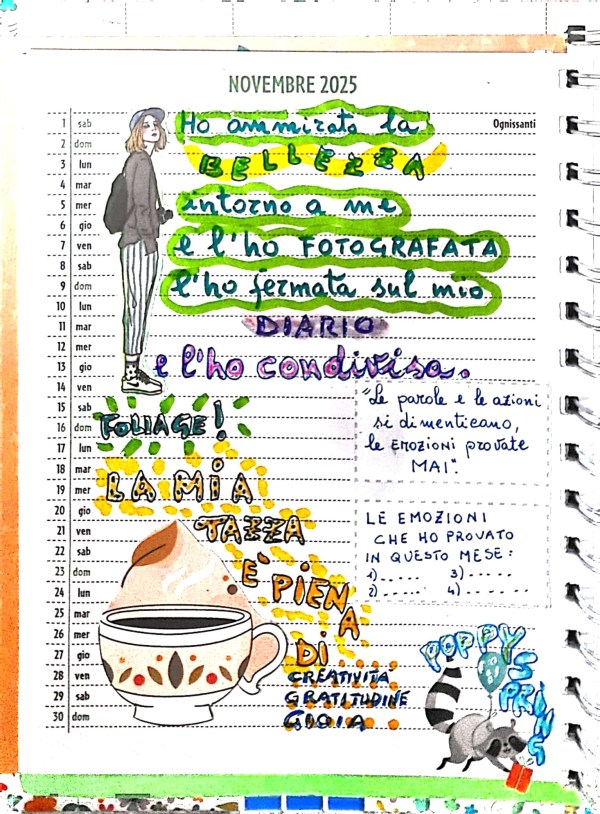 NOVEMBRE 2025
1 sab Ognissanti
2 dom
3 lun
4 mar
5 mer
6 gio
7 ven
8 sab
9 dom
10 lun
11 mar
12 mer
13 gio
14 ven
15 sab
16 dom
17 lun
18 mar
19 mer
20 gio
21 ven
22 sab
23 dom
24 lun
25 mar
26 mer
27 gio
28 ven
29 sab
30 dom
Ho ammirato la
BELLEZZA
intorno a me
e l'ho FOTOGRAFATA
l'ho fermata sul mio
DIARIO
e l'ho condivisa.
"Le parole e le azioni
si dimenticano,
le EMOZIONI provate
MAI".
FOLIAGE!
LA MIA
TAZZA
È PIENA
DI
CREATIVITA
GRATITUDINE
GIOIA
LE EMOZIONI
CHE HO PROVATO
IN QUESTO MESE:
1)..... 3)......
2)..... 4)......
POPPY
SPRING